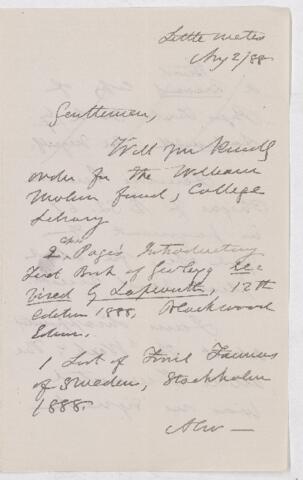 Little Metis
Aug 2/88
Gentlemen,
Will you kindly
order for the William
Molson fund, College
Library
2 copies Page's Introductory
Text Book of Geology re-
vised by Lapworth, 12th
Edition 1888, Blackwood
Edin.
1 List of Fossil Faunas
of Sweden, Stockholm
1888.